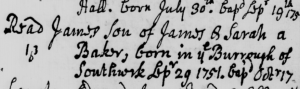 Hall. born July 30th. bap. Sepr. 19th
Read James Son of James & Sarah a
Baker, born in ye Burrough of
Southwerk Sepr 29 1751. bap. Octr 17.